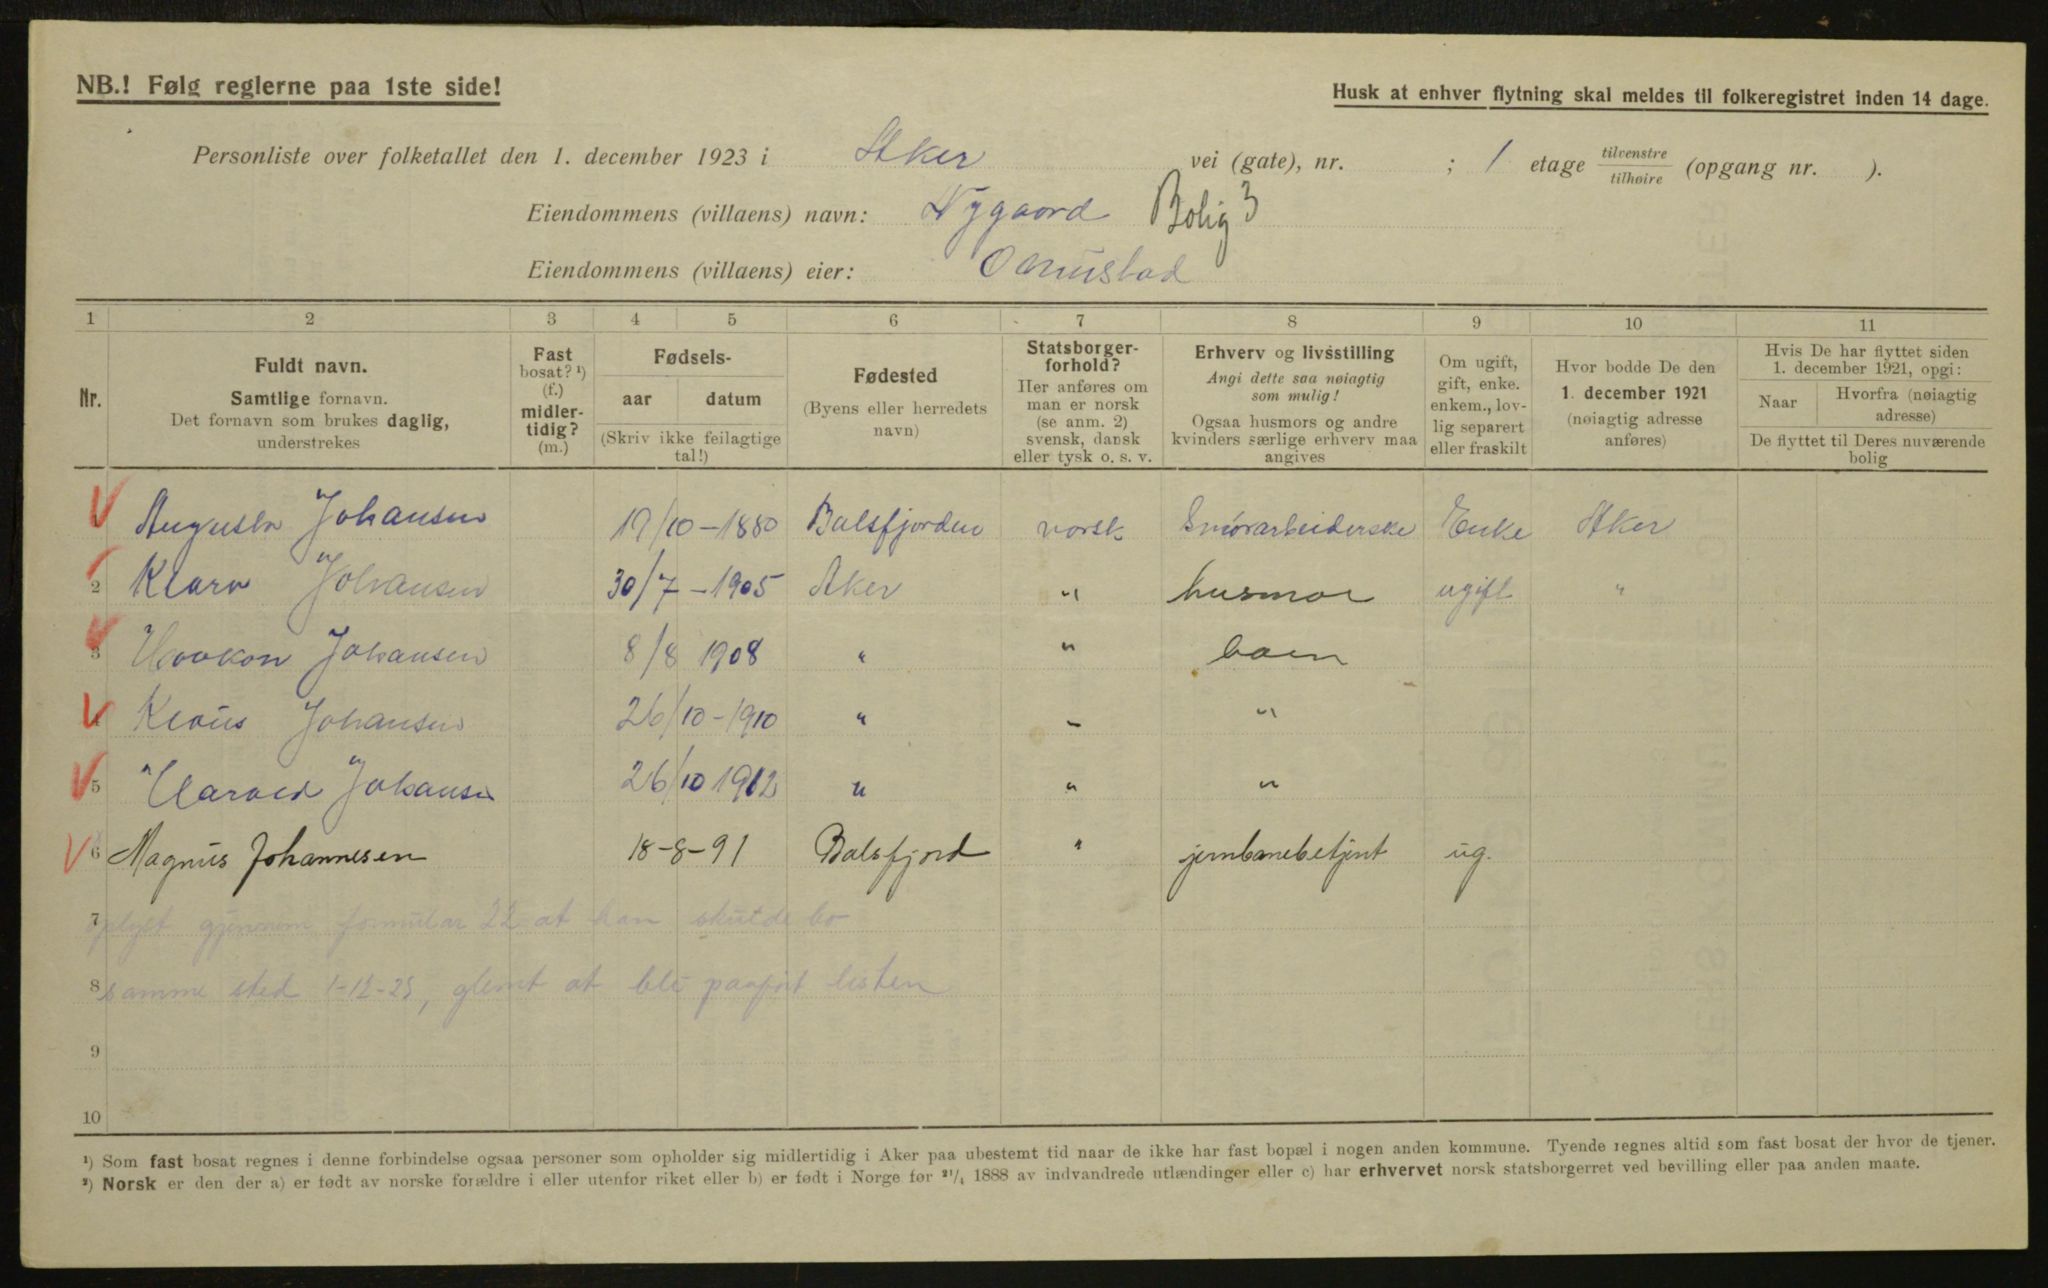 NB.! Følg reglerne paa 1ste side!
Husk at enhver flytning skal meldes til folkeregistret inden 14 dage.
Personliste over folketallet den 1. december 1923 i Aker vei (gate), nr. ; 1 etage tilvenstre/tilhøire (opgang nr. ).
Eiendommens (villaens) navn: Nygaard Bolig 3
Eiendommens (villaens) eier: O Mustad
1 2 3 4 5 6 7 8 9 10 11
Nr.
Fuldt navn.
Samtlige fornavn.
Det fornavn som brukes daglig,
understrekes
Fast
bosat? ¹)
(f.)
midler-
tidig?
(m.)
Fødsels-
aar datum
(Skriv ikke feilagtige
tal!)
Fødested
(Byens eller herredets
navn)
Statsborger-
forhold?
Her anføres om
man er norsk
(se anm. 2)
svensk, dansk
eller tysk o. s. v.
Erhverv og livsstilling
Angi dette saa nøiagtig
som mulig!
Ogsaa husmors og andre
kvinders særlige erhverv maa
angives
Om ugift,
gift, enke.
enkem., lov-
lig separert
eller fraskilt
Hvor bodde De den
1. december 1921
(nøiagtig adresse
anføres)
Hvis De har flyttet siden
1. december 1921, opgi:
Naar
Hvorfra (nøiagtig
adresse)
De flyttet til Deres nuværende
bolig
1 Augusta Johansen 19/10-1880 Balsfjorden norsk Smørarbeiderske Enke Aker
2 Klara Johansen 30/7-1905 Aker " husmor ugift "
3 Haakon Johansen 8/8 1908 " " barn
4 Klaus Johansen 26/10-1910 " " "
5 Harald Johansen 26/10 1912 " " "
6 Magnus Johannesen 18-8-91 Balsfjord " jernbanebetjent ug.
7 oplyst gjennem formular 22 at han skulde bo
8 samme sted 1-12-23, glemt at bli paaført listen
9
10
¹) Som fast bosat regnes i denne forbindelse ogsaa personer som opholder sig midlertidig i Aker paa ubestemt tid naar de ikke har fast bopæl i nogen anden kommune. Tyende regnes altid som fast bosat der hvor de tjener.
²) Norsk er den der a) er født av norske forældre i eller utenfor riket eller b) er født i Norge før ²¹/₄ 1888 av indvandrede utlændinger eller c) har erhvervet norsk statsborgerret ved bevilling eller paa anden maate.